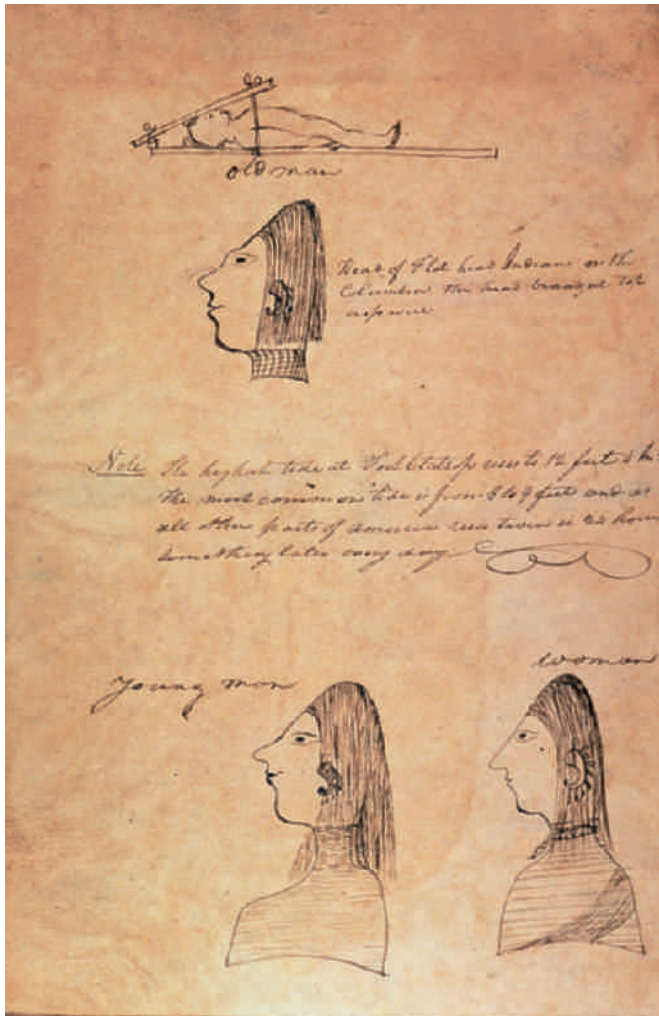 old man
Head of Flat head Indians on the
Columbia the head
Note The highest tide at Fort Clatsop rises to 12 feet
the most common tide is from 8 to 9 feet and as
all other parts of america twice in 24 hours
Something later every day
young man
woman